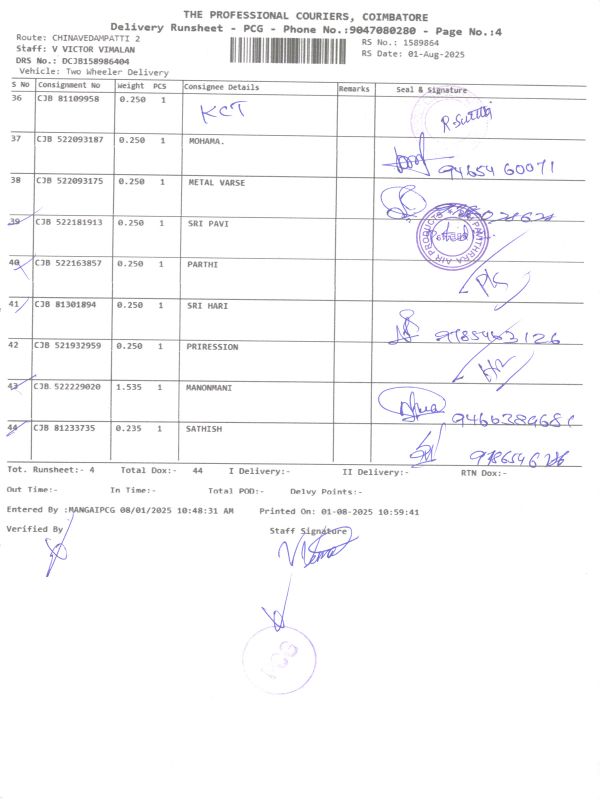 THE PROFESSIONAL COURIERS, COIMBATORE
Delivery Runsheet - PCG - Phone No.:9047080280 - Page No.:4
Route: CHINAVEDAMPATTI 2
RS No.: 1589864
Staff: V VICTOR VIMALAN
RS Date: 01-Aug-2025
DRS No.: DCJB158986404
Vehicle: Two Wheeler Delivery
S No Consignment No Weight PCS Consignee Details Remarks Seal & Signature
36 CJB 81109958 0.250 1 KCT
37 CJB 522093187 0.250 1 MOHAMA. 9465460071
38 CJB 522093175 0.250 1 METAL VARSE
39 CJB 522181913 0.250 1 SRI PAVI
PANTHERA AIR PRODUCTS
40 CJB 522163857 0.250 1 PARTHI
41 CJB 81301894 0.250 1 SRI HARI
42 CJB 521932959 0.250 1 PRIRESSION
43 CJB 522229020 1.535 1 MANONMANI
44 CJB 81233735 0.235 1 SATHISH
Tot. Runsheet:- 4 Total Dox:- 44 I Delivery:- II Delivery:- RTN Dox:-
Out Time:- In Time:- Total POD:- Delvy Points:-
Entered By :MANGAIPCG 08/01/2025 10:48:31 AM Printed On: 01-08-2025 10:59:41
Verified By Staff Signature
PCG